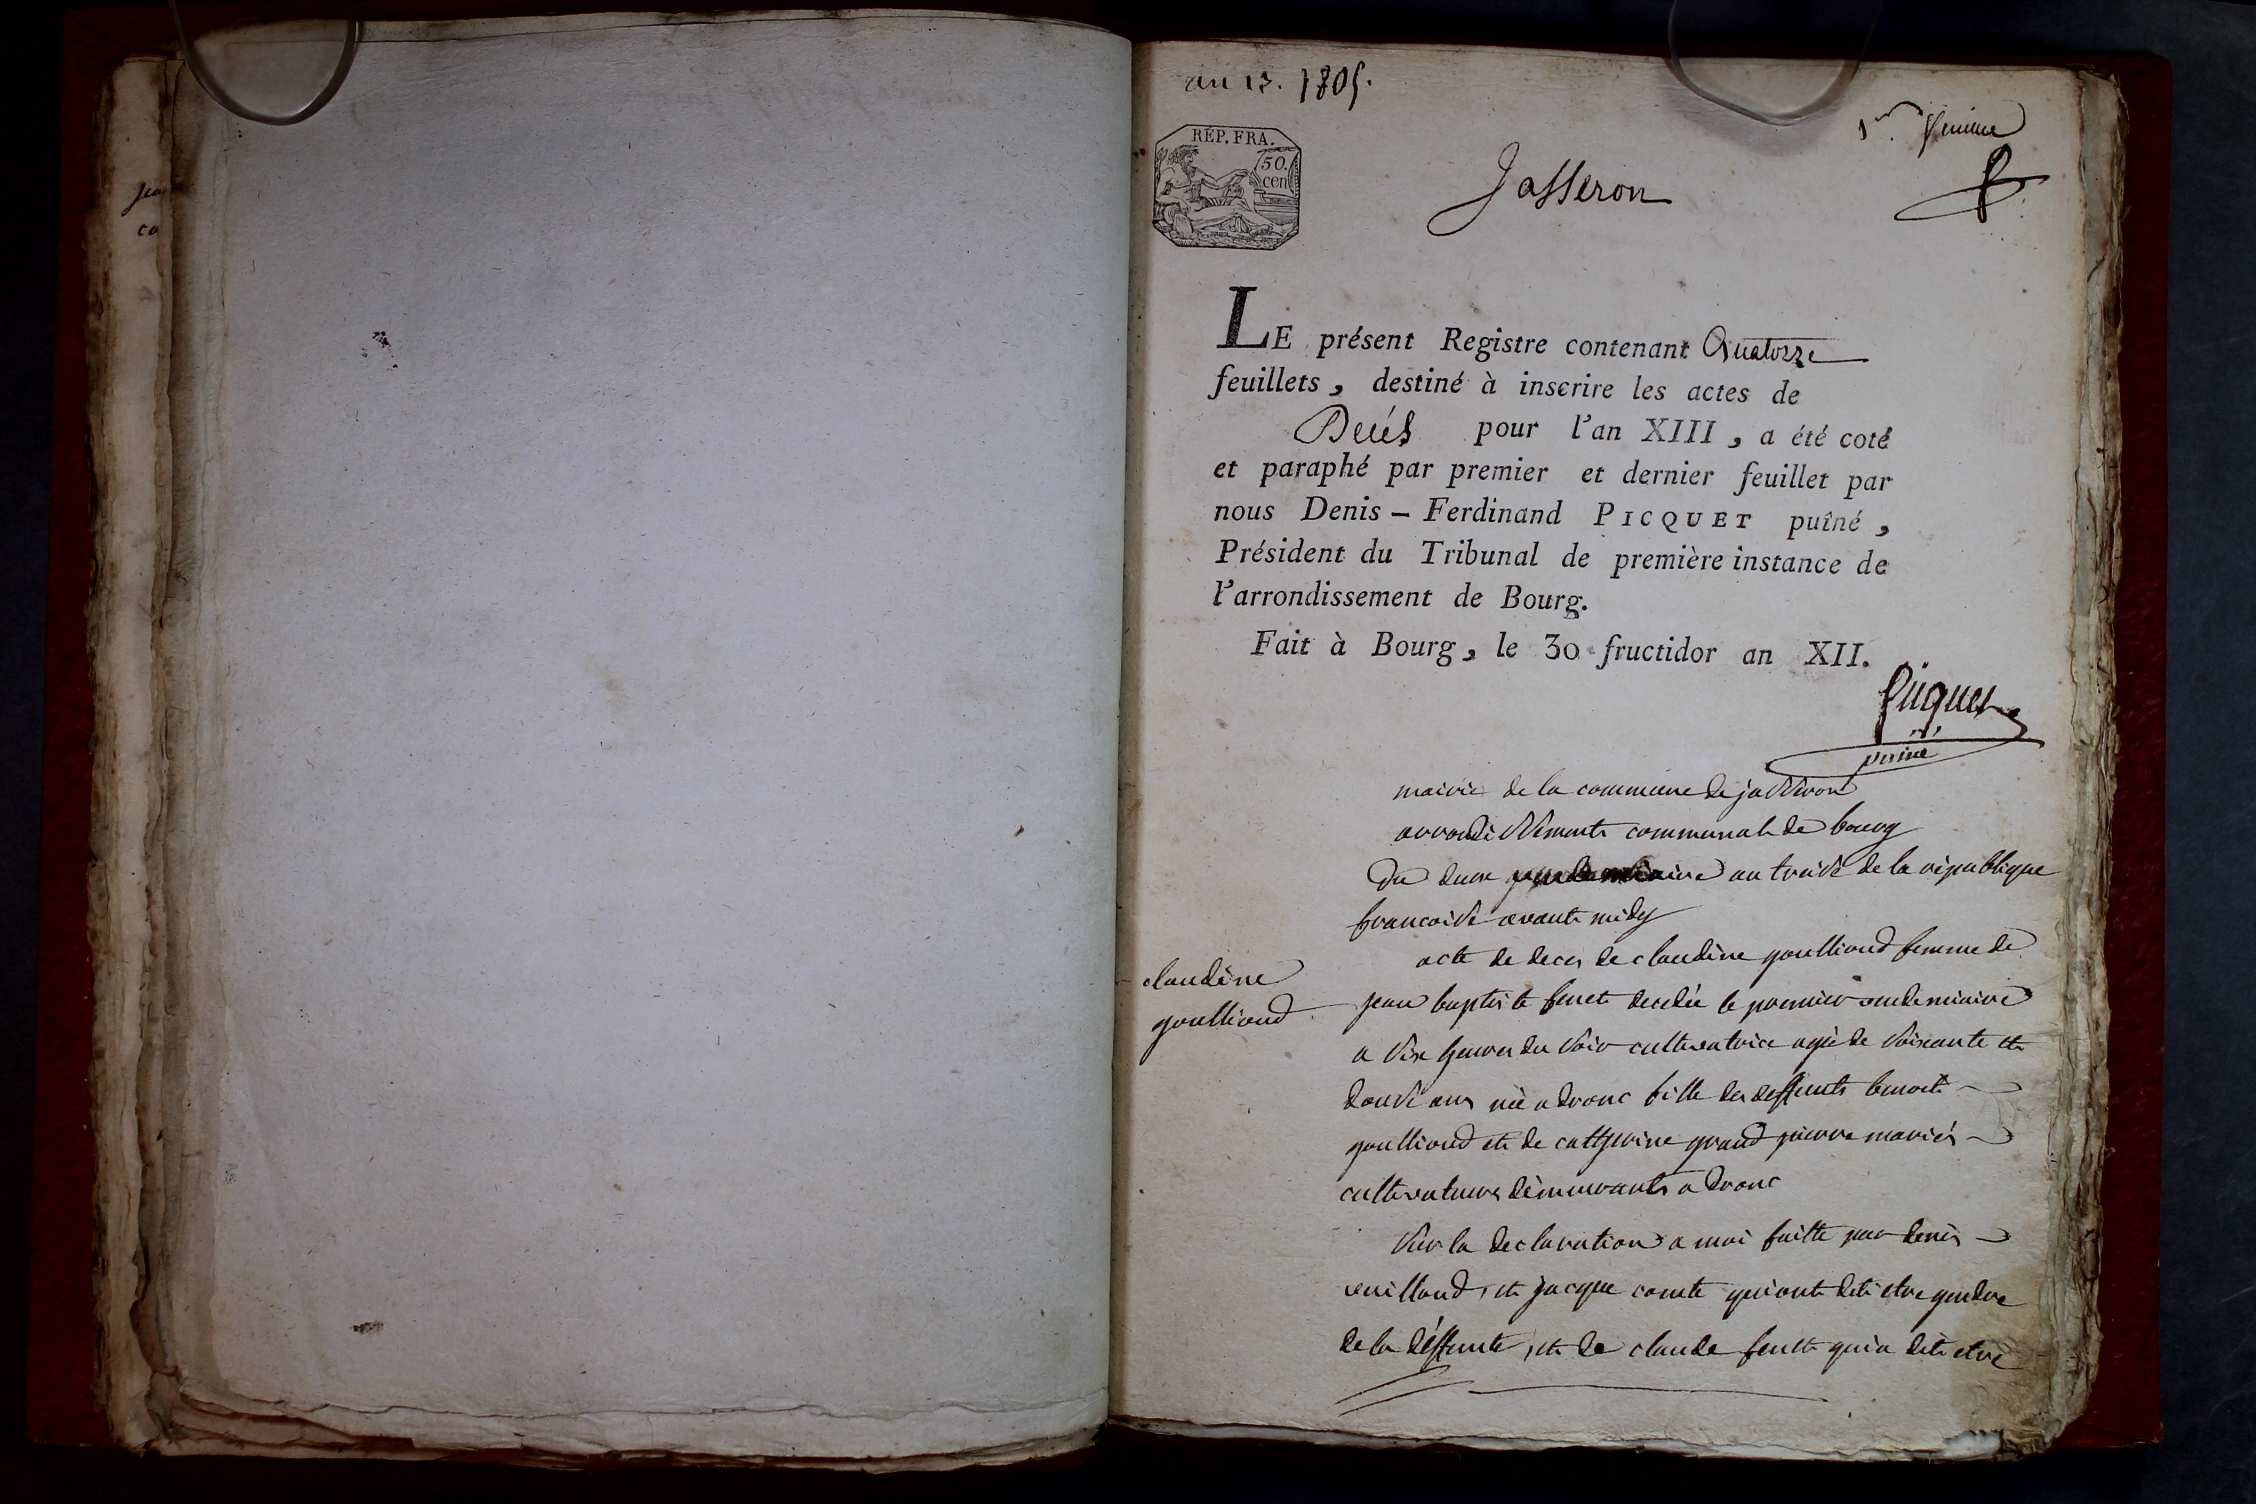 Jea
co
an 13. 1805.
RÉP. FRA.
50.
cen
1er feuillet
Jasseron
LE présent Registre contenant Quatorze
feuillets, destiné à inscrire les actes de
Décès pour l'an XIII, a été coté
et paraphé par premier et dernier feuillet par
nous Denis - Ferdinand PICQUET puîné,
Président du Tribunal de première instance de
l'arrondissement de Bourg.
Fait à Bourg, le 30 fructidor an XII.
Picquet
puiné
mairie de la commune de jasseron
arrondissement communal de bourg
Du deux vendemiaire an treise de la république
francoise avant midy
acte de deces de claudine goullioud femme de
claudine
goullioud
jean baptiste feuet decedée le premier vendemiaire
a six heures du soir cultivatrice agée de soixante et
douse ans née a drom fille des deffunts benoit
goullioud et de catherine grand pierre mariés
cultivateurs démeurants a drom
Sur la declaration a moi faitte par denis
veuilloud, et jacque comte qui ont dit etre gendre
de la déffunte, et de claude feuet qui a dit etre